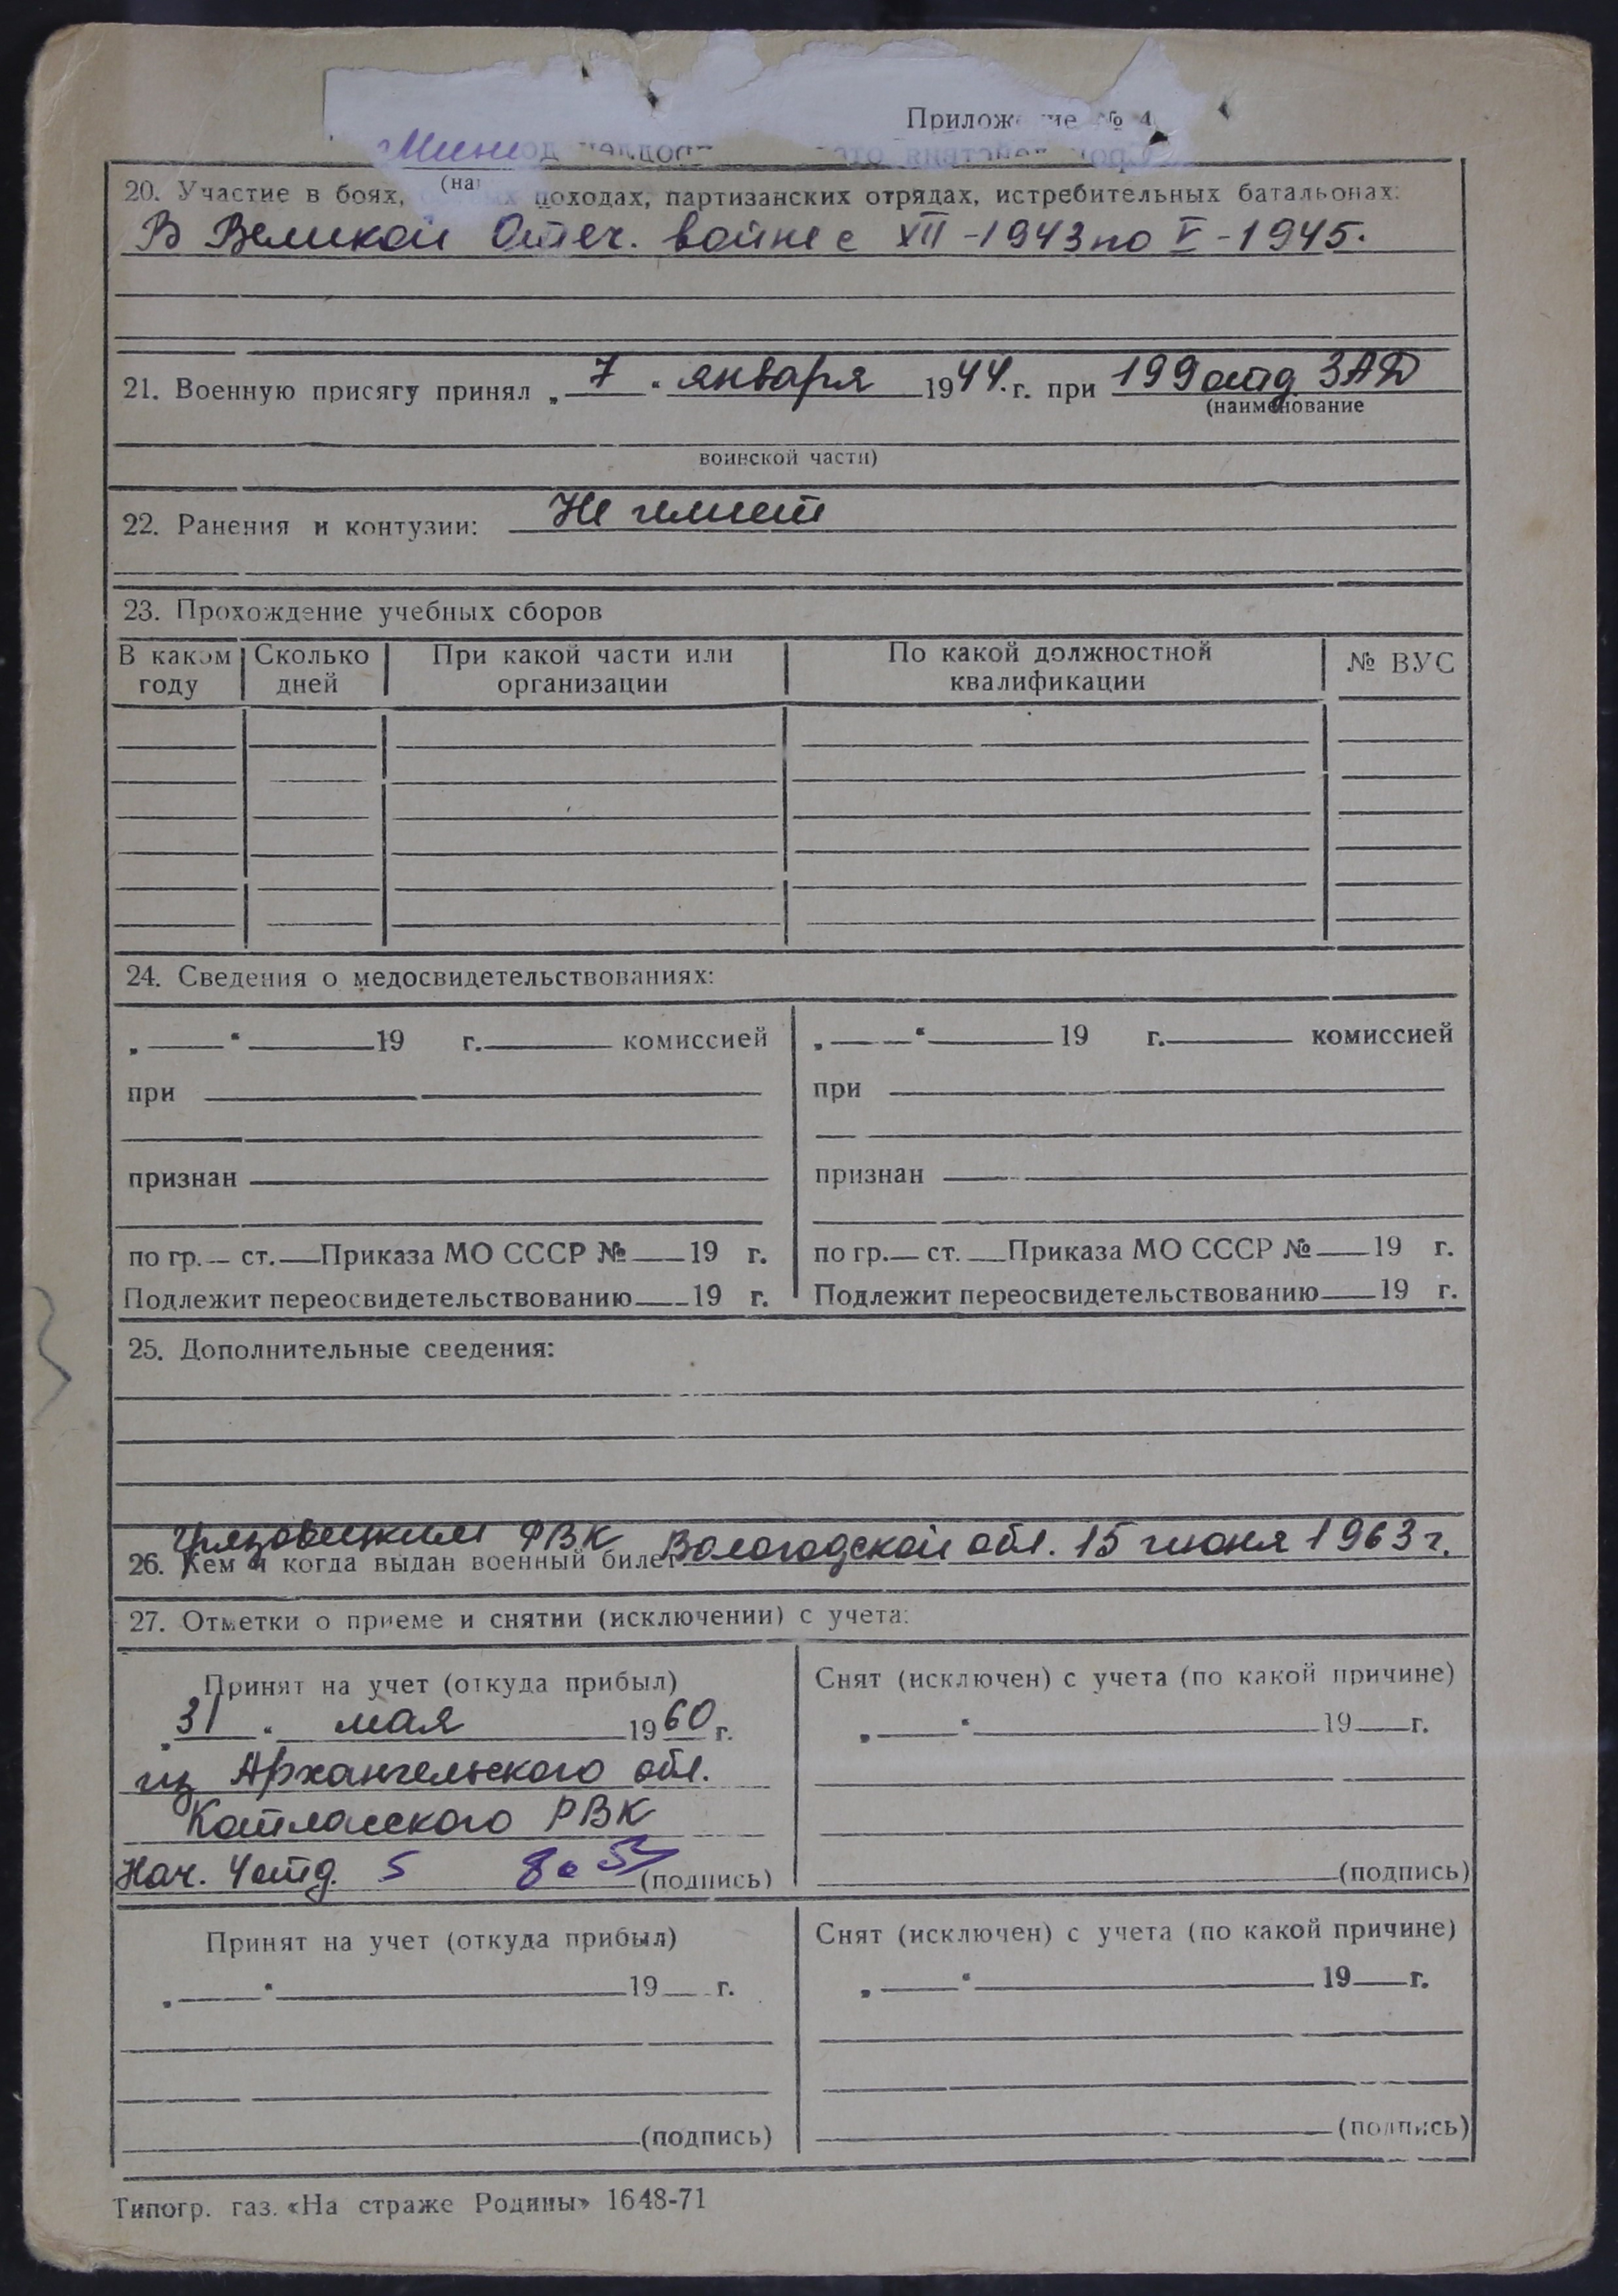 Приложение № 4
Мини
(на
20. Участие в боях, походах, партизанских отрядах, истребительных батальонах:
В Великой Отеч. войне с XII-1943 по V-1945.
21. Военную присягу принял „ 7 " января 1944. г. при 199 отд ЗАД
(наименование
воинской части)
22. Ранения и контузии: Не имеет
23. Прохождение учебных сборов
В каком году Сколько дней При какой части или организации По какой должностной квалификации № ВУС
24. Сведения о медосвидетельствованиях:
„ " 19 г. комиссией
при
признан
по гр. ст. Приказа МО СССР № 19 г.
Подлежит переосвидетельствованию 19 г.
„ " 19 г. комиссией
при
признан
по гр. ст. Приказа МО СССР № 19 г.
Подлежит переосвидетельствованию 19 г.
25. Дополнительные сведения:
Грязовецким РВК Вологодской обл. 15 июня 1963 г.
26. Кем и когда выдан военный билет
27. Отметки о приеме и снятии (исключении) с учета:
Принят на учет (откуда прибыл)
„ 31 " мая 1960 г.
из Архангельского обл.
Котласского РВК
Нач. 4 отд. (подпись)
Снят (исключен) с учета (по какой причине)
„ " 19 г.
(подпись)
Принят на учет (откуда прибыл)
„ " 19 г.
(подпись)
Снят (исключен) с учета (по какой причине)
„ " 19 г.
(подпись)
Типогр. газ. «На страже Родины» 1648-71